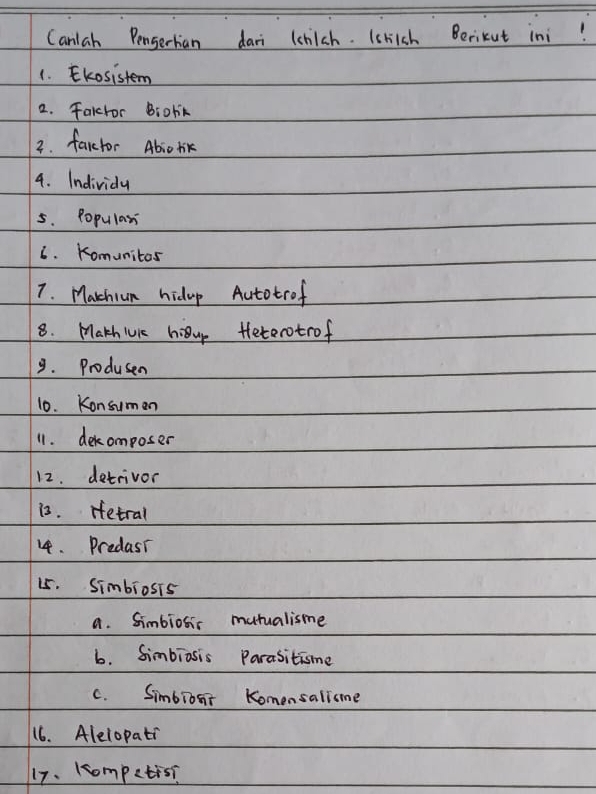 Carilah Pengertian dari Istilah - Istilah Berikut ini !
1. Ekosistem
2. Faktor Biotik
3. faktor Abiotik
4. Individu
5. Populasi
6. Komunitas
7. Makhluk hidup Autotrof
8. Makhluk hidup Heterotrof
9. Produsen
10. Konsumen
11. dekomposer
12. detrivor
13. Netral
14. Predasi
15. Simbiosis
a. Simbiosis mutualisme
b. Simbiosis Parasitisme
c. Simbiosis Komensalisme
16. Alelopati
17. Kompetisi